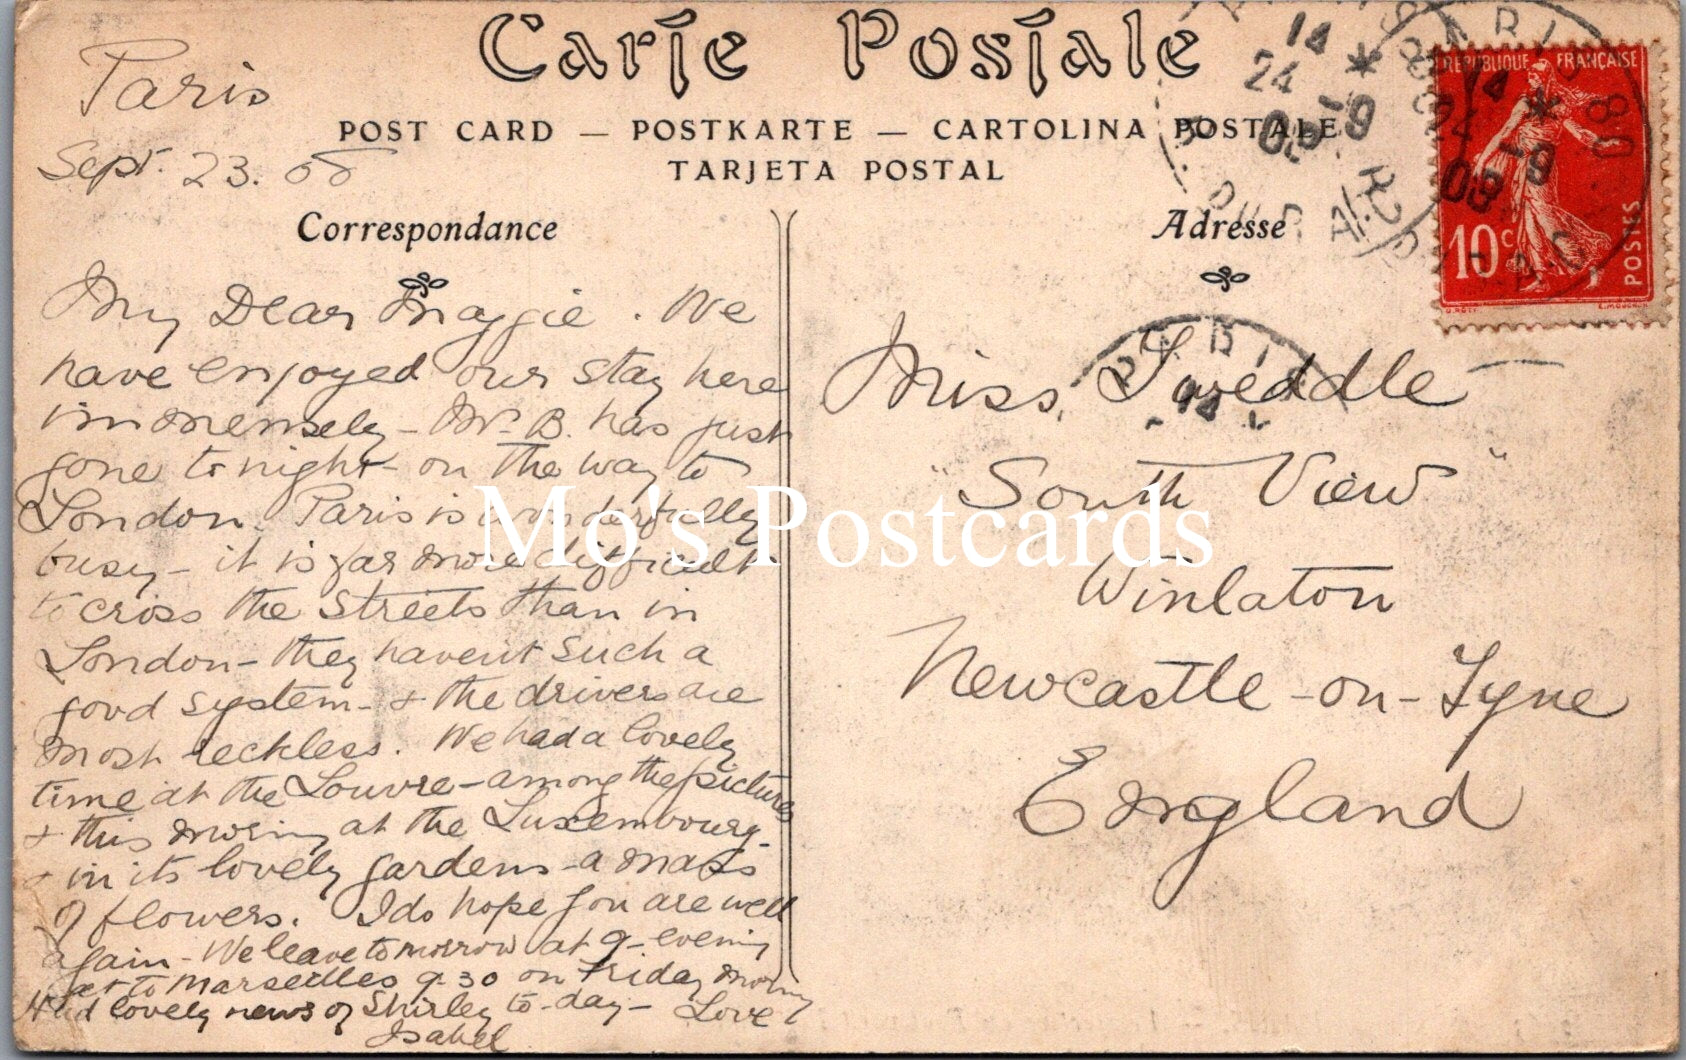 Carte Postale
POST CARD — POSTKARTE — CARTOLINA POSTALE
TARJETA POSTAL
Paris
Sept. 23. 08
Correspondance
My Dear Maggie. We
have enjoyed our stay here
immensely – Mr. B. has just
gone to night – on the way to
London. Paris is wonderfully
busy – it is far more difficult
to cross the streets than in
London – they havent such a
good system – & the drivers are
most reckless. We had a lovely
time at the Louvre – among the pictures
& this morning at the Luxembourg –
& in its lovely gardens – a mass
of flowers. I do hope you are well
again – We leave tomorrow at 9 – evening
get to Marseilles 9.30 on Friday morning
Had lovely news of Shirley to-day – Love
Isabel
Adresse
Miss. Tweddle
"South View"
Winlaton
Newcastle-on-Tyne
England
REPUBLIQUE FRANÇAISE
10c
POSTES
PARIS
14
24 -9
08
PARIS
14
24 -9
08
PARIS
14
Mo's Postcards